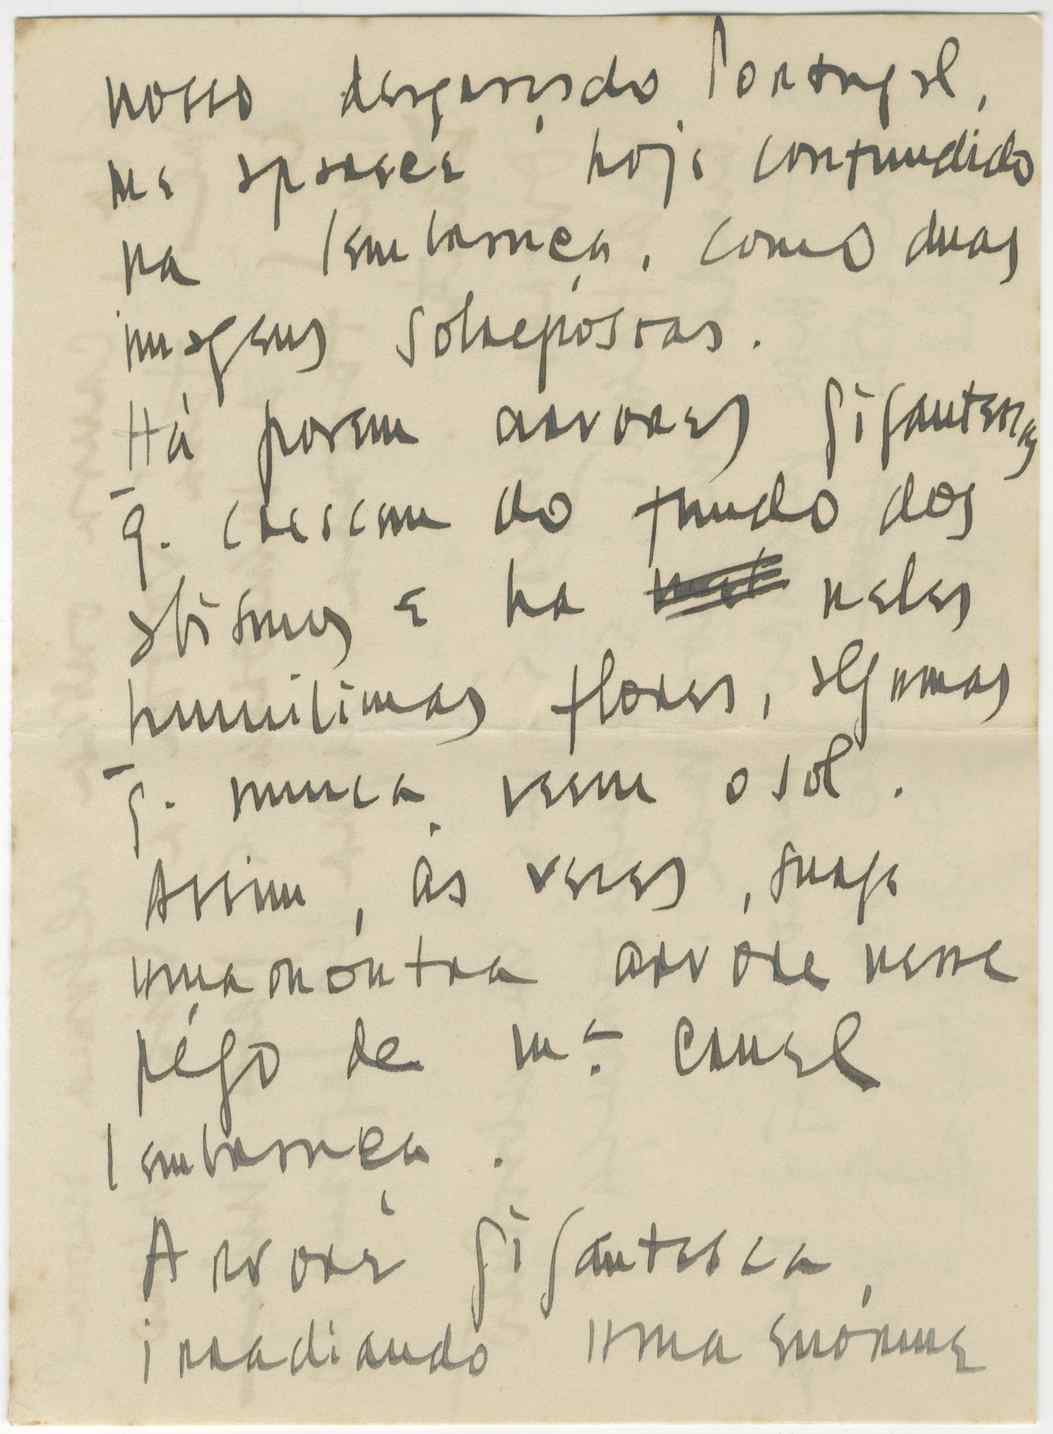 nosso desgraçado Portugal,
me aparece hoje confundido
na lembrança, como duas
imagens sobrepóstas.
Há porem arvores gigantescas
q̄. crescem do fundo dos
abismos e ha neles
humilimas flores, algumas
q̄. nunca veem o sol.
Assim, ás vezes, surge
uma ou outra arvore nesse
pégo de m.ª cruel
lembrança.
Arvore gigantesca,
irradiando uma enórme